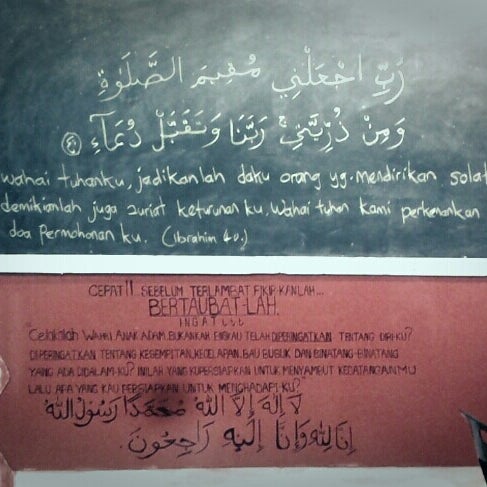 رَبِّ اجْعَلْنِي مُقِيمَ الصَّلَوٰةِ
وَمِنْ ذُرِّيَّتِي ۚ رَبَّنَا وَتَقَبَّلْ دُعَآءِ ٤٠
wahai tuhanku, jadikanlah daku orang yg. mendirikan solat
demikianlah juga zuriat keturunan ku, wahai tuhan kami perkenankan
doa permohonan ku. (Ibrahim 40.)
CEPAT!! SEBELUM TERLAMBAT FIKIRKANLAH...
BERTAUBAT-LAH.
INGAT
Celakalah WAHAI ANAK ADAM, BUKANKAH ENGKAU TELAH DIPERINGATKAN TENTANG DIRIKU?
DIPERINGATKAN TENTANG KESEMPITAN, KEGELAPAN, BAU BUSUK DAN BINATANG-BINATANG
YANG ADA DIDALAM-KU? INILAH YANG KUPERSIAPKAN UNTUK MENYAMBUT KEDATANGANMU
LALU APA YANG KAU PERSIAPKAN UNTUK MENGHADAPI KU?
لَا إِلَهَ إِلَّا اللهُ مُحَمَّدًا رَسُولُ اللهُ
إِنَا لِلهِ وَإِنَا إِلَيْهِ رَاجِعُونَ.